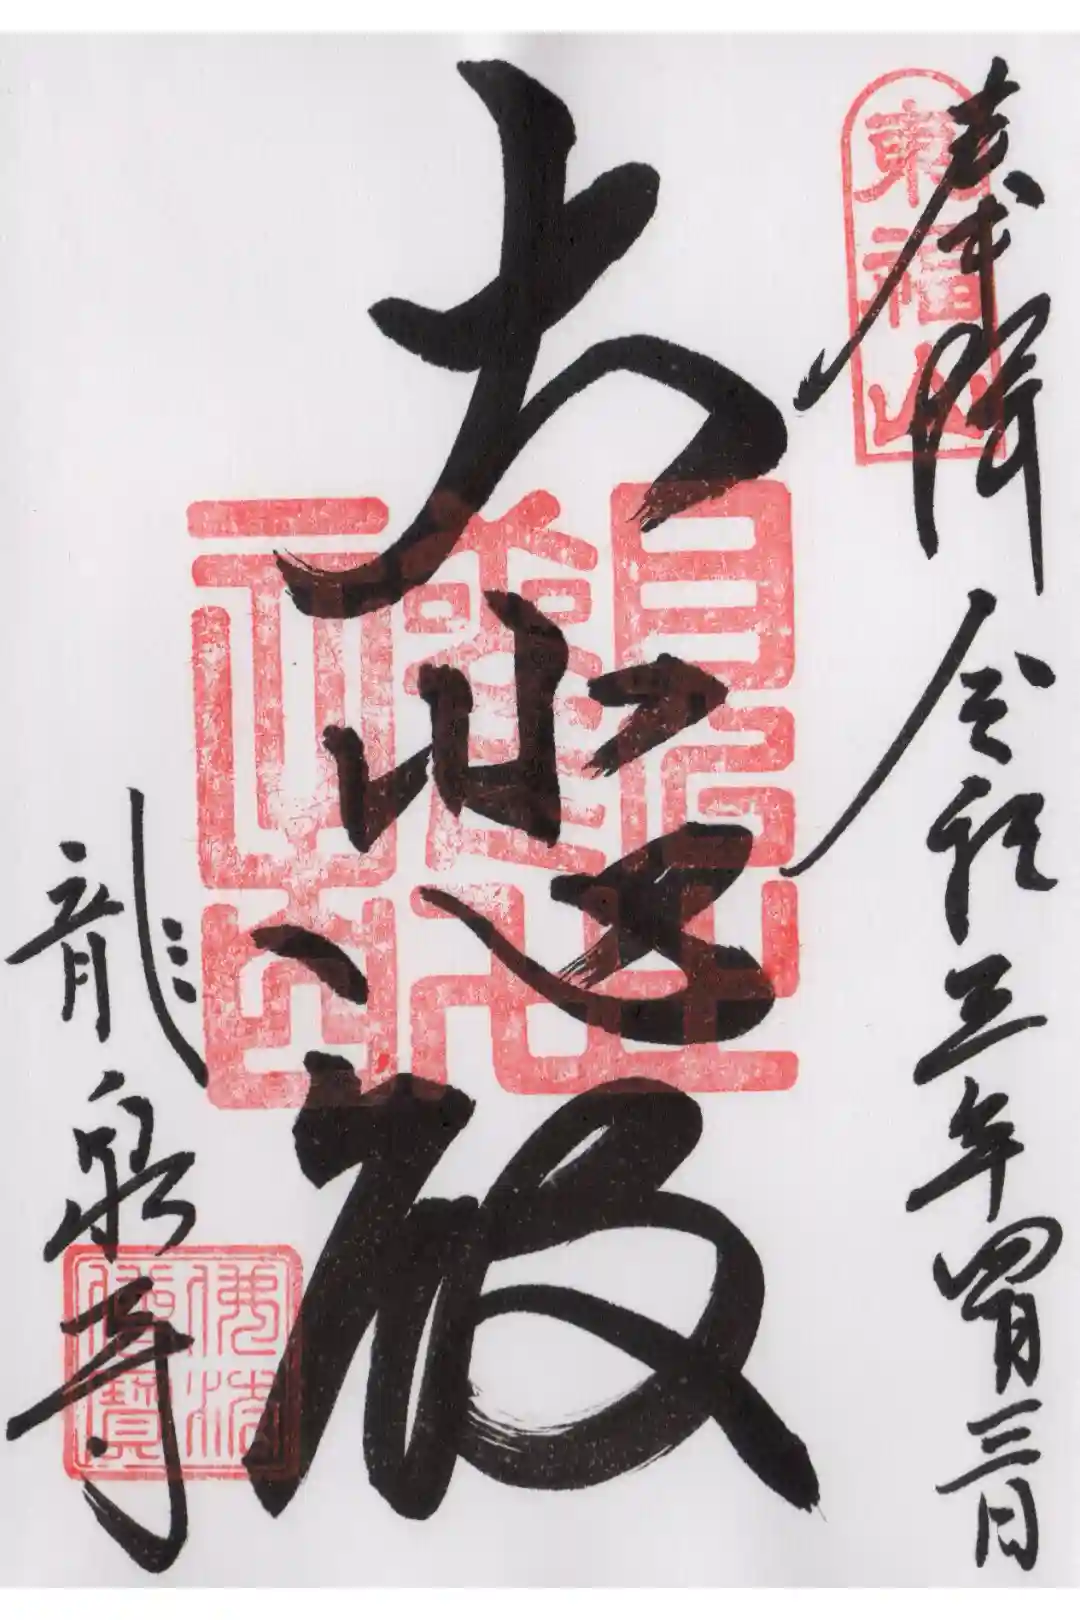 奉拝 令和三年四月三日
東福山
大悲殿
龍泉寺
佛法僧寶